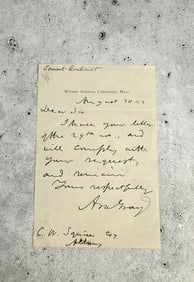 Botanic Garden, Cambridge, Mass.
August 30
Dear Sir
I have your letter
of the 29th inst., and
will comply with
your request,
and remain
Yours respectfully
Asa Gray
Esq
Albany